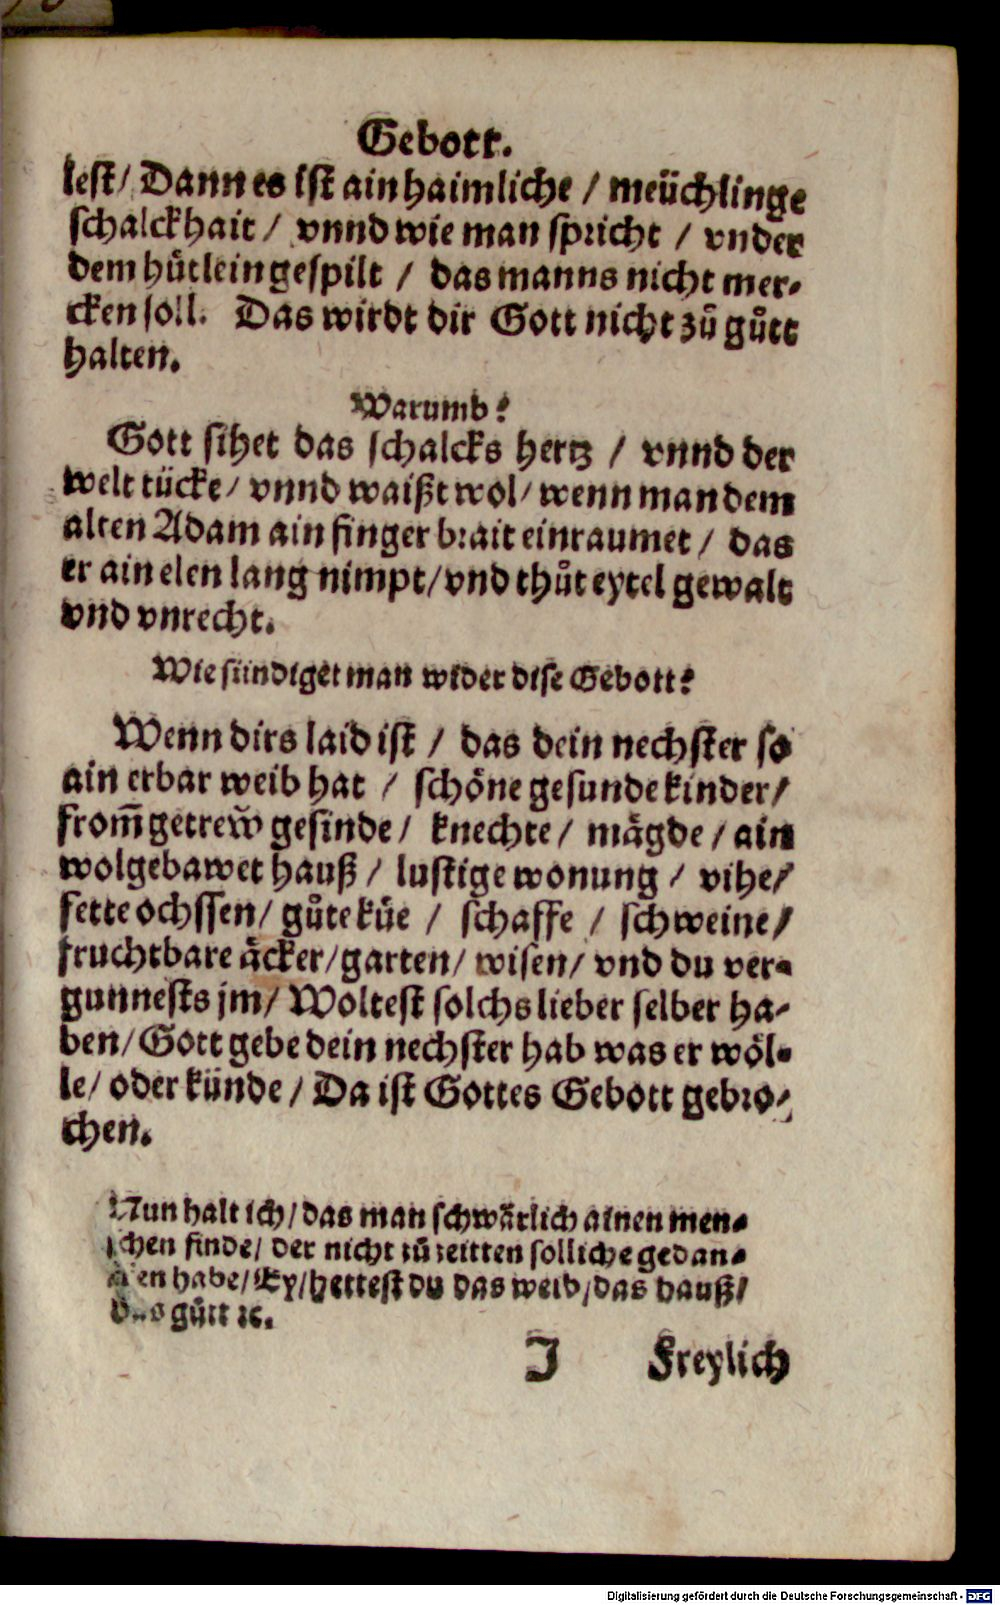 Gebott.
lest/ Dann es ist ain haimliche / meüchlinge
schalckhait / vnnd wie man spricht / vnder
dem hůtlein gespilt / das manns nicht mer-
cken soll. Das wirdt dir Gott nicht zů gůtt
halten.
Warumb?
Gott sihet das schalcks hertz / vnnd der
welt tücke/ vnnd waißt wol/ wenn man dem
alten Adam ain finger brait einraumet / das
er ain elen lang nimpt/ vnd thůt eytel gewalt
vnd vnrecht.
Wie sündiget man wider dise Gebott?
Wenn dirs laid ist / das dein nechster so
ain erbar weib hat / schöne gesunde kinder/
from̃ getrew̃ gesinde/ knechte/ mägde/ ain
wolgebawet hauß / lustige wonung / vihe/
fette ochssen/ gůte küe / schaffe / schweine/
fruchtbare äcker/ garten/ wisen/ vnd du ver-
gunnests jm/ Woltest solchs lieber selber ha-
ben/ Gott gebe dein nechster hab was er wöl-
le/ oder künde / Da ist Gottes Gebott gebro-
chen.
Nun halt ich/ das man schwärlich ainen men-
schen finde/ der nicht zů zeitten solliche gedan-
cken habe/ Ey/ hettest du das weib/ das hauß/
das gůtt ꝛc.
J Freylich
Digitalisierung gefördert durch die Deutsche Forschungsgemeinschaft - DFG